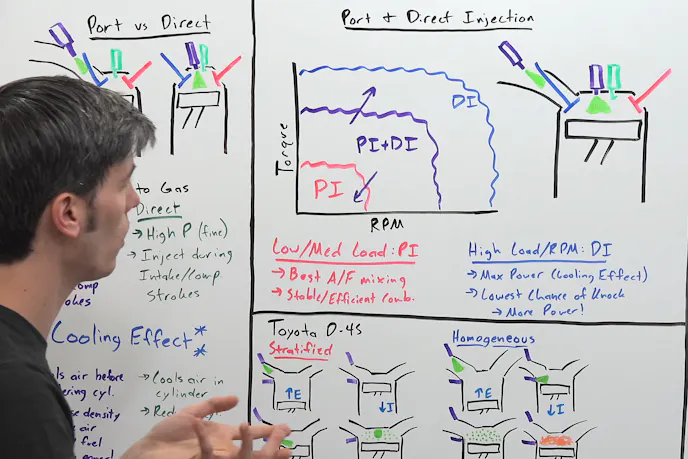 Port vs Direct
to Gas
Direct
→ High P (fine)
→ Inject during
Intake/Comp.
Strokes
Cooling Effect*
*
air before
cyl.
density
air
fuel
→ Cools air in
cylinder
Port & Direct Injection
Torque
DI
PI+DI
PI
RPM
Low/Med Load: PI
→ Best A/F mixing
→ Stable/Efficient Comb.
High Load/RPM: DI
→ Max Power (Cooling Effect)
→ Lowest Chance of Knock
→ More Power!
Toyota D-4S
Stratified
Homogeneous
↑E
↓I
↑E
↓I